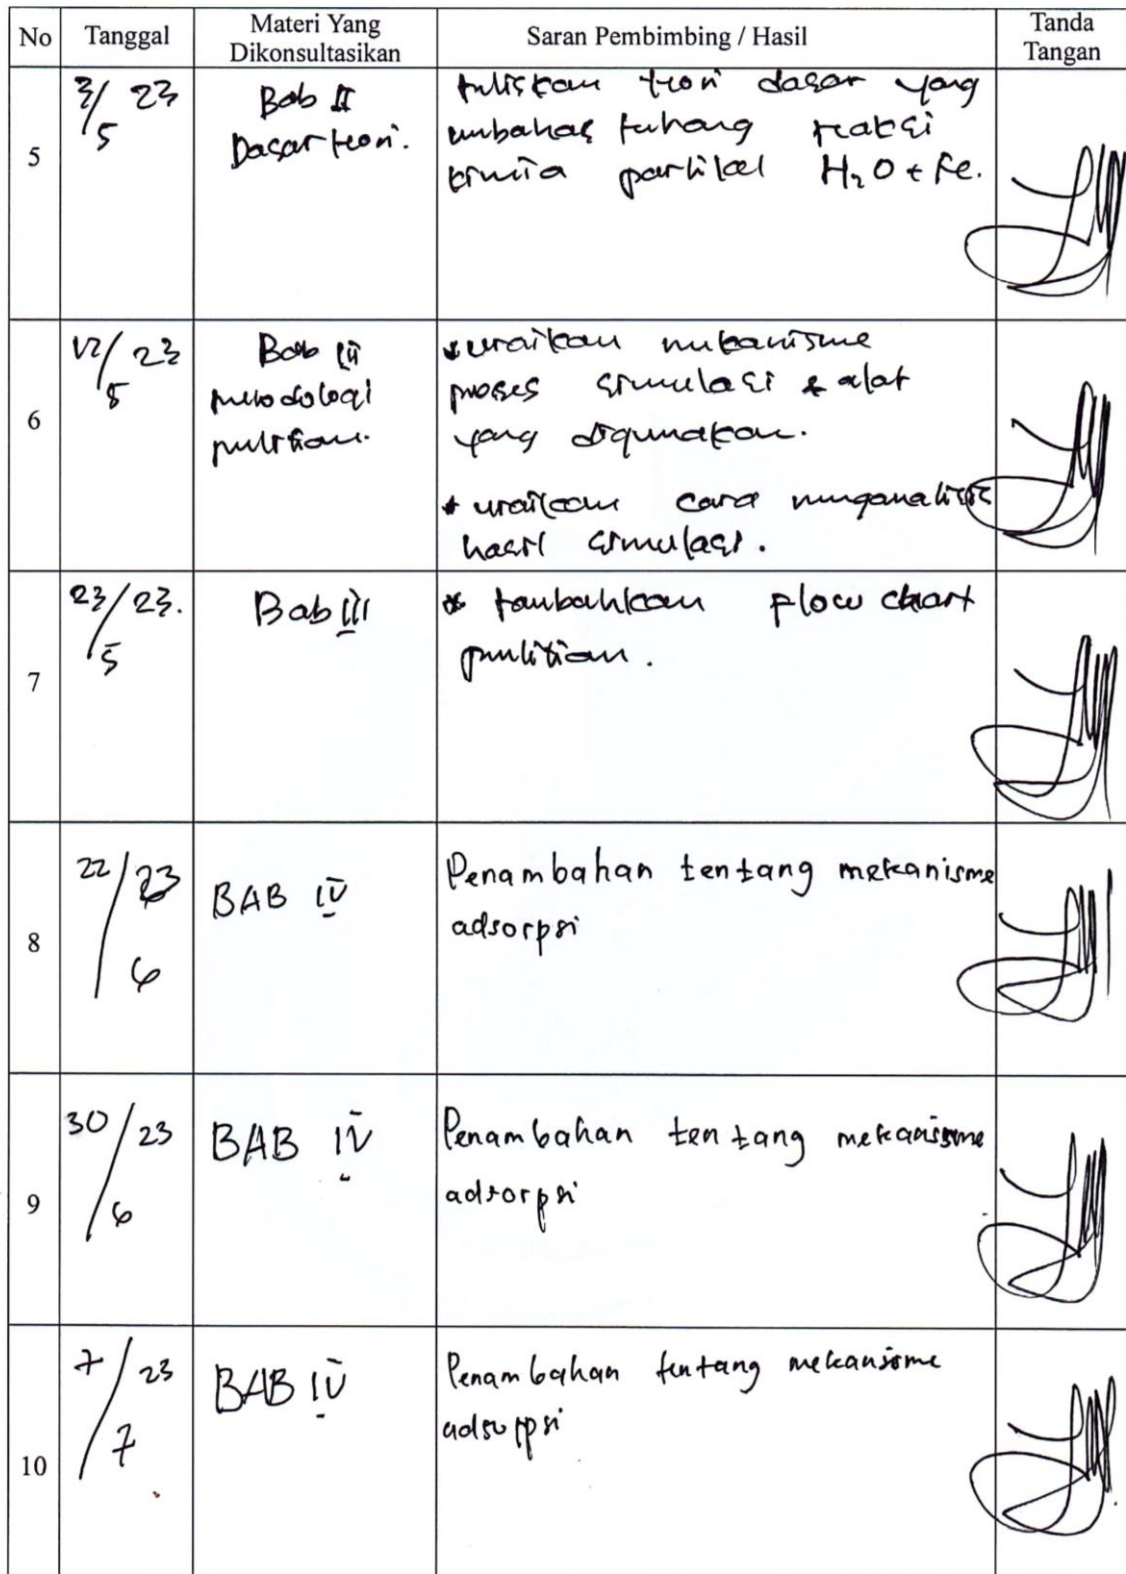 No Tanggal Materi Yang Dikonsultasikan Saran Pembimbing / Hasil Tanda Tangan
5
3/5 23
Bab II
Dasar teori.
tuliskan teori dasar yang
membahas tentang reaksi
kimia partikel H₂O + Fe.
6
12/5 23
Bab III
metodologi
penelitian.
* uraikan mekanisme
proses simulasi & alat
yang digunakan.
* uraikan cara menganalisis
hasil simulasi.
7
23/5 23.
Bab III
* tambahkan flow chart
penelitian.
8
22/6 23
BAB IV
Penambahan tentang mekanisme
adsorpsi
9
30/6 23
BAB IV
Penambahan tentang mekanisme
adsorpsi
10
7/7 23
BAB IV
Penambahan tentang mekanisme
adsorpsi